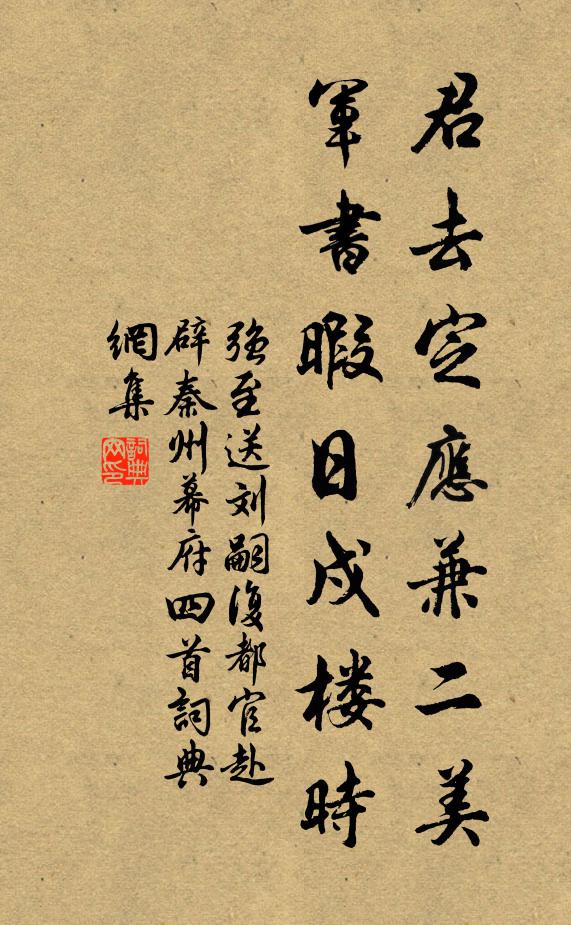 君去定應兼二美
軍書暇日戍楼時
強至送刘嗣復都官赴
辟秦州幕府四首詞典
網集
詞典网印